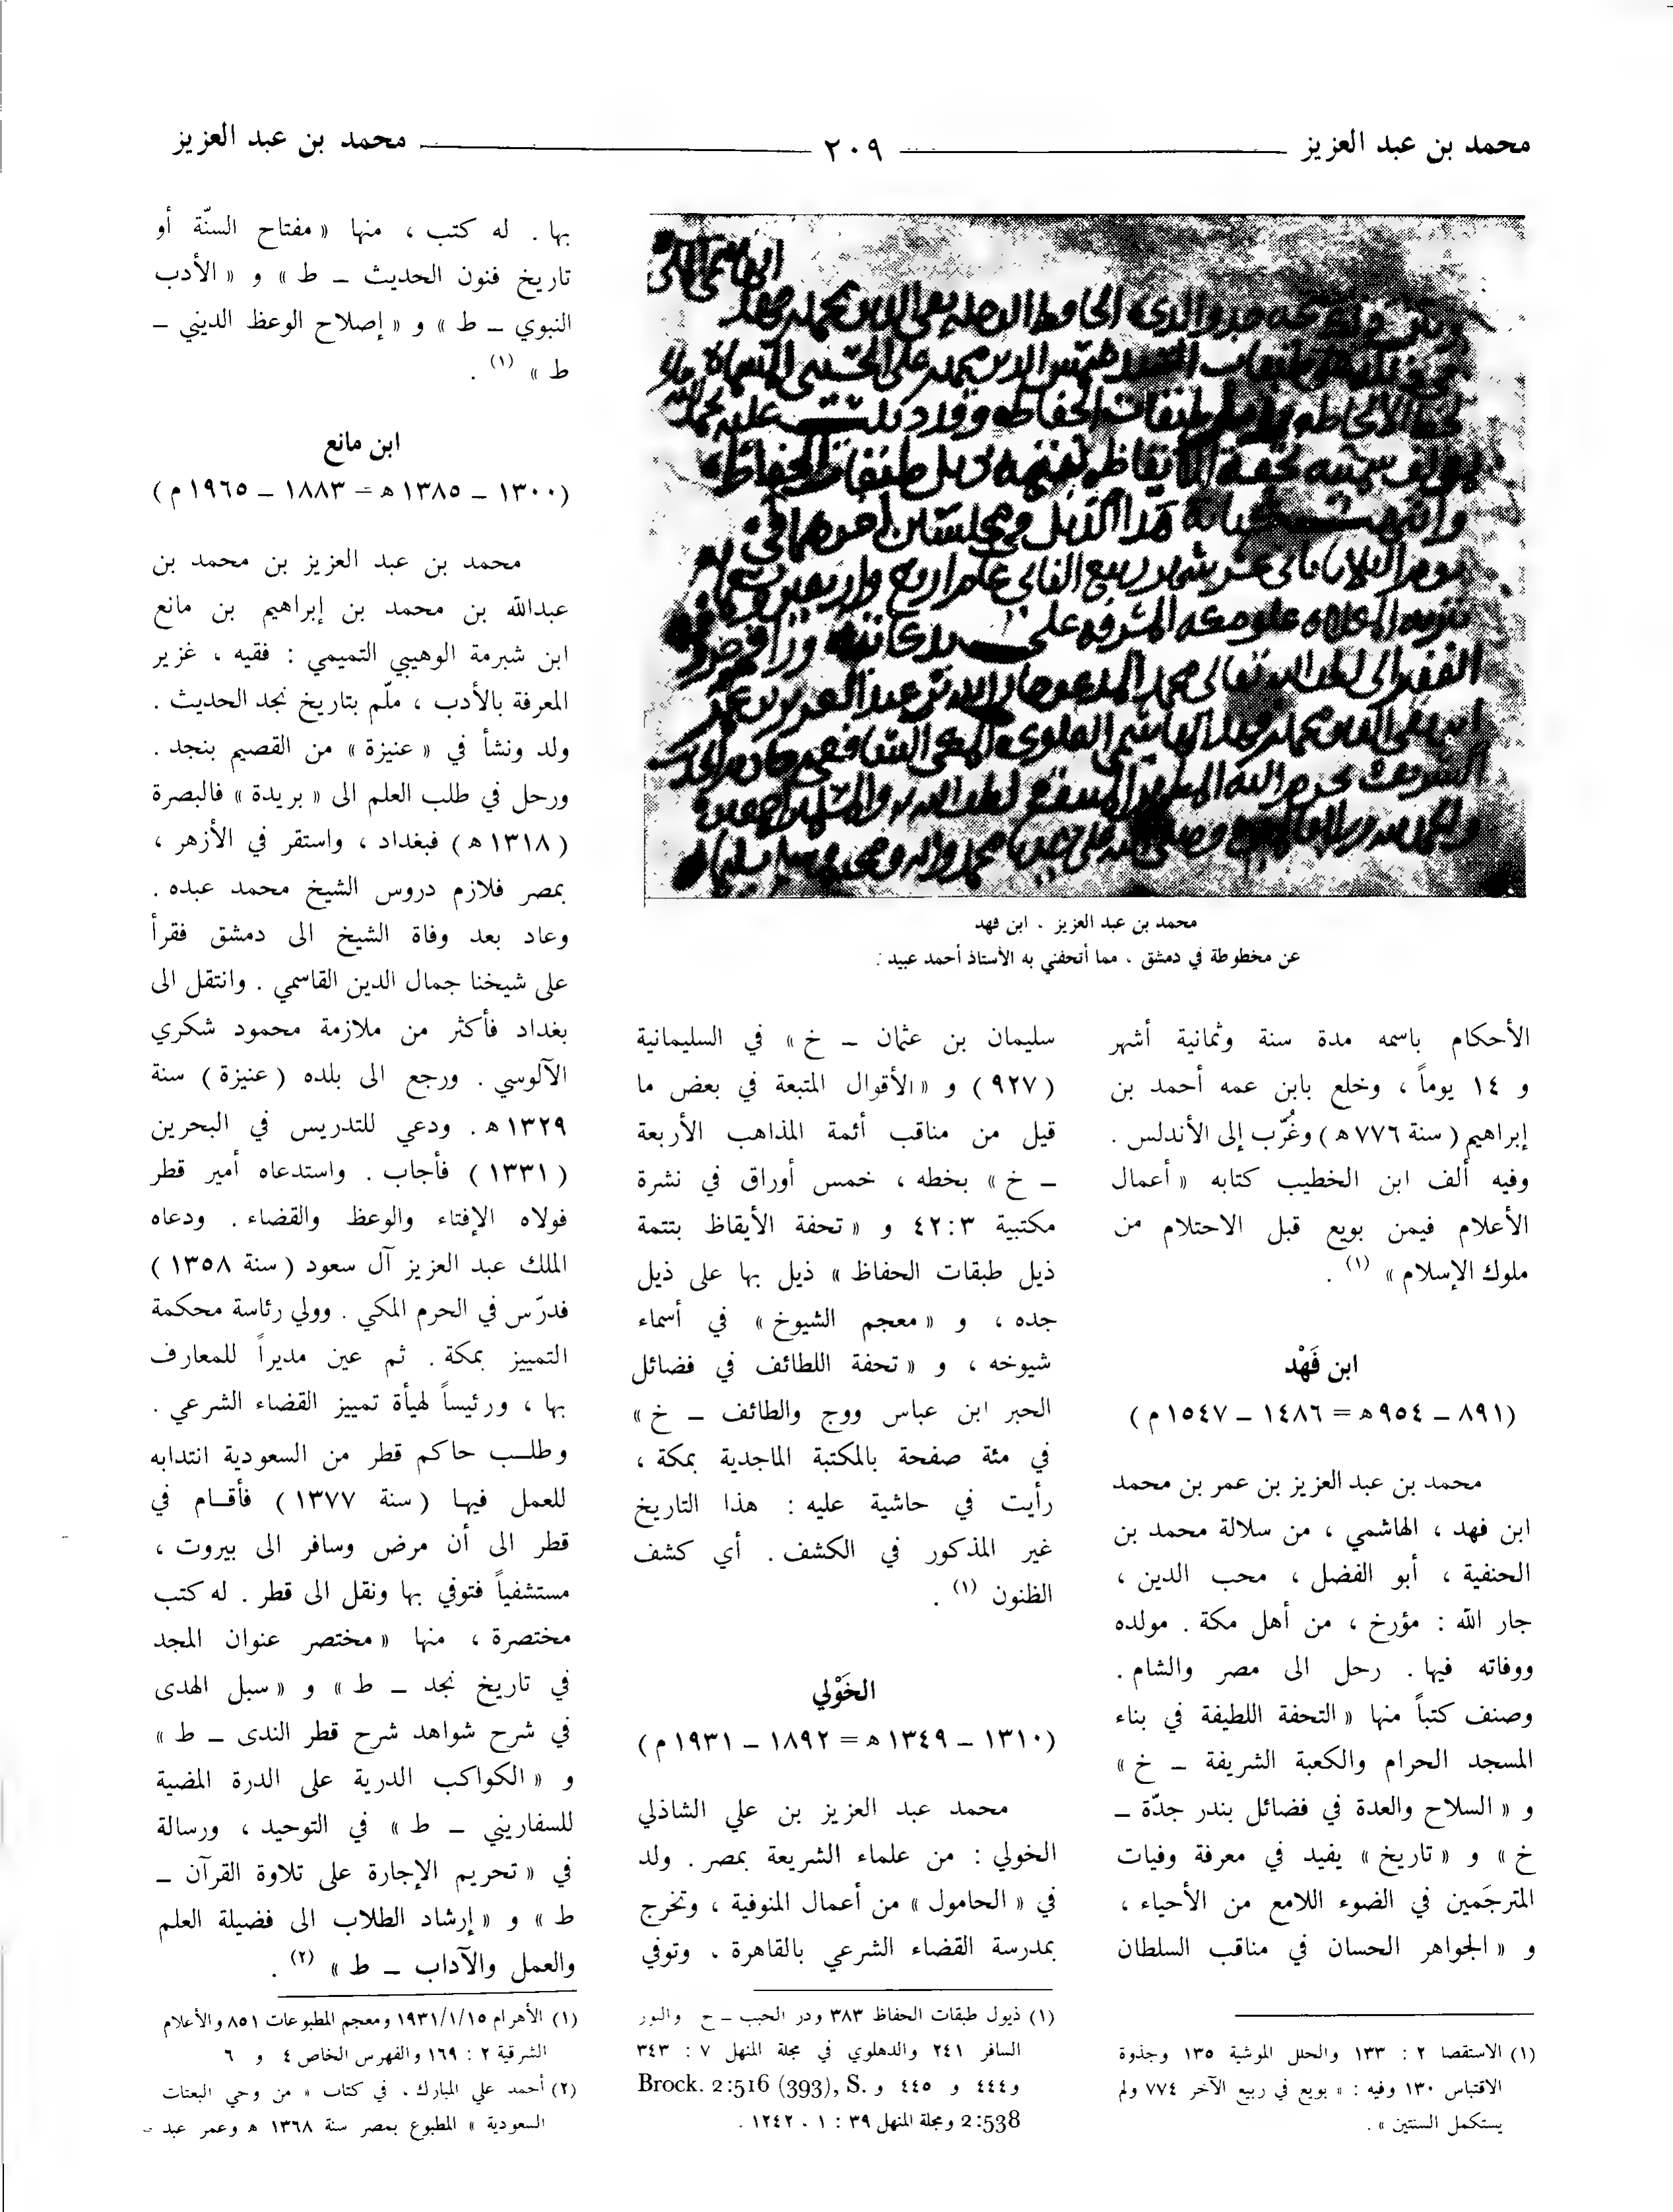 محمد بن عبد العزيز ٢٠٩ محمد بن عبد العزيز
محمد بن عبد العزيز . ابن فهد
عن مخطوطة في دمشق ، مما أتحفني به الأستاذ أحمد عبيد :
الأحكام باسمه مدة سنة وثمانية أشهر
و ١٤ يوماً ، وخلع بابن عمه أحمد بن
إبراهيم ( سنة ٧٧٦ ه ) وغُرّب إلى الأندلس .
وفيه ألف ابن الخطيب كتابه « أعمال
الأعلام فيمن بويع قبل الاحتلام من
ملوك الإسلام » (١) .
ابن فَهْد
(٨٩١ ــ ٩٥٤ ه = ١٤٨٦ ــ ١٥٤٧ م )
محمد بن عبد العزيز بن عمر بن محمد
ابن فهد ، الهاشمي ، من سلالة محمد بن
الحنفية ، أبو الفضل ، محب الدين ،
جار الله : مؤرخ ، من أهل مكة . مولده
ووفاته فيها . رحل الى مصر والشام .
وصنف كتباً منها « التحفة اللطيفة في بناء
المسجد الحرام والكعبة الشريفة ــ خ »
و « السلاح والعدة في فضائل بندر جدّة ــ
خ » و « تاريخ » يفيد في معرفة وفيات
المترجَمين في الضوء اللامع من الأحياء ،
و « الجواهر الحسان في مناقب السلطان
(١) الاستقصا ٢ : ١٣٣ والحلل الموشية ١٣٥ وجذوة
الاقتباس ١٣٠ وفيه : « بويع في ربيع الآخر ٧٧٤ ولم
يستكمل السنتين » .
سليمان بن عثمان ــ خ » في السليمانية
( ٩٢٧ ) و « الأقوال المتبعة في بعض ما
قيل من مناقب أئمة المذاهب الأربعة
ــ خ » بخطه ، خمس أوراق في نشرة
مكتبية ٤٢:٣ و « تحفة الأيقاظ بتتمة
ذيل طبقات الحفاظ » ذيل بها على ذيل
جده ، و « معجم الشيوخ » في أسماء
شيوخه ، و « تحفة اللطائف في فضائل
الحبر ابن عباس ووج والطائف ــ خ »
في مئة صفحة بالمكتبة الماجدية بمكة ،
رأيت في حاشية عليه : هذا التاريخ
غير المذكور في الكشف . أي كشف
الظنون (١) .
الخَوْلي
(١٣١٠ ــ ١٣٤٩ ه = ١٨٩٢ ــ ١٩٣١ م )
محمد عبد العزيز بن علي الشاذلي
الخولي : من علماء الشريعة بمصر . ولد
في « الحامول » من أعمال المنوفية ، وتخرج
بمدرسة القضاء الشرعي بالقاهرة ، وتوفي
(١) ذيول طبقات الحفاظ ٣٨٣ ودر الحبب ــ خ والنور
السافر ٢٤١ والدهلوي في مجلة المنهل ٧ : ٣٤٣
و٤٤٤ و ٤٤٥ و Brock. 2:516 (393), S.
2:538 ومجلة المنهل ٣٩ : ١ . ١٢٤٢ .
بها . له كتب ، منها « مفتاح السنّة أو
تاريخ فنون الحديث ــ ط » و « الأدب
النبوي ــ ط » و « إصلاح الوعظ الديني ــ
ط » (١) .
ابن مانع
(١٣٠٠ ــ ١٣٨٥ ه = ١٨٨٣ ــ ١٩٦٥ م )
محمد بن عبد العزيز بن محمد بن
عبدالله بن محمد بن إبراهيم بن مانع
ابن شبرمة الوهيبي التميمي : فقيه ، غزير
المعرفة بالأدب ، ملّم بتاريخ نجد الحديث .
ولد ونشأ في « عنيزة » من القصيم بنجد .
ورحل في طلب العلم الى « بريدة » فالبصرة
( ١٣١٨ ه ) فبغداد ، واستقر في الأزهر ،
بمصر فلازم دروس الشيخ محمد عبده .
وعاد بعد وفاة الشيخ الى دمشق فقرأ
على شيخنا جمال الدين القاسمي . وانتقل الى
بغداد فأكثر من ملازمة محمود شكري
الآلوسي . ورجع الى بلده ( عنيزة ) سنة
١٣٢٩ ه . ودعي للتدريس في البحرين
( ١٣٣١ ) فأجاب . واستدعاه أمير قطر
فولاه الإفتاء والوعظ والقضاء . ودعاه
الملك عبد العزيز آل سعود ( سنة ١٣٥٨ )
فدرّس في الحرم المكي . وولي رئاسة محكمة
التمييز بمكة . ثم عين مديراً للمعارف
بها ، ورئيساً لهيأة تمييز القضاء الشرعي .
وطلب حاكم قطر من السعودية انتدابه
للعمل فيها ( سنة ١٣٧٧ ) فأقام في
قطر الى أن مرض وسافر الى بيروت ،
مستشفياً فتوفي بها ونقل الى قطر . له كتب
مختصرة ، منها « مختصر عنوان المجد
في تاريخ نجد ــ ط » و « سبل الهدى
في شرح شواهد شرح قطر الندى ــ ط »
و « الكواكب الدرية على الدرة المضية
للسفاريني ــ ط » في التوحيد ، ورسالة
في « تحريم الإجارة على تلاوة القرآن ــ
ط » و « إرشاد الطلاب الى فضيلة العلم
والعمل والآداب ــ ط » (٢) .
(١) الأهرام ١٩٣١/١/١٥ ومعجم المطبوعات ٨٥١ والأعلام
الشرقية ٢ : ١٦٩ والفهرس الخاص ٤ و ٦
(٢) أحمد علي المبارك ، في كتاب « من وحي البعثات
السعودية » المطبوع بمصر سنة ١٣٦٨ ه وعمر عبد ــ